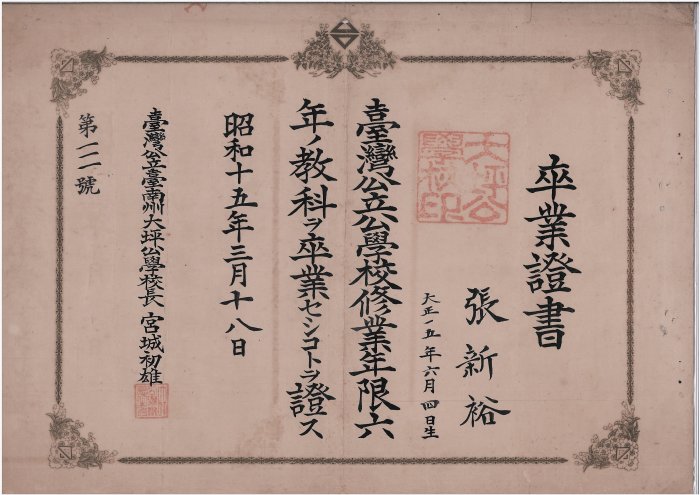 卒業證書
張新裕
大正一五年六月四日生
大坪公學校印
臺灣公立公學校修業年限六
年ノ教科ヲ卒業セシコトヲ證ス
昭和十五年三月十八日
臺灣公立臺南州大坪公學校長 宮城初雄
第一二號